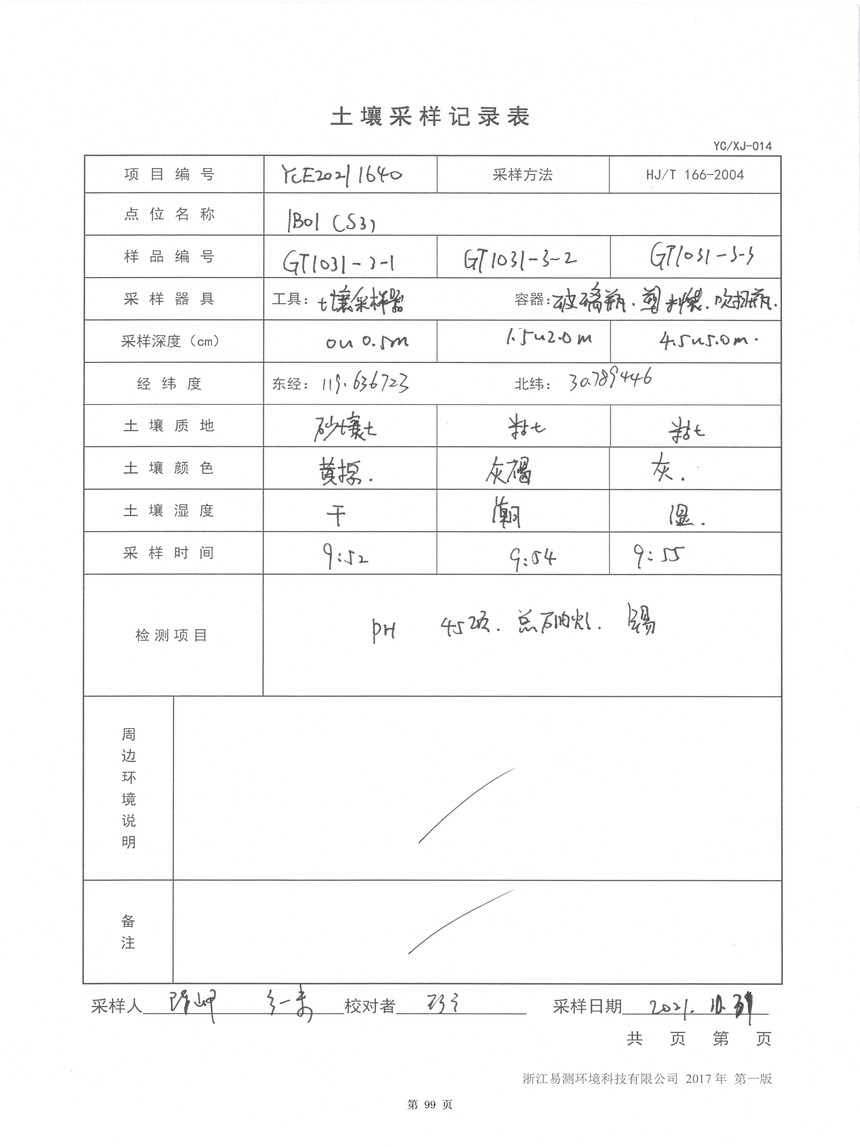 土壤采样记录表
YC/XJ-014
项目编号 YCE20211640 采样方法 HJ/T 166-2004
点位名称 1B01 (S3)
样品编号 GT1031-3-1 GT1031-3-2 GT1031-3-3
采样器具 工具：土壤采样器 容器：玻璃瓶.塑料袋.吹扫瓶.
采样深度（cm） 0~0.5m 1.5~2.0m 4.5~5.0m.
经纬度 东经：119.636723 北纬：30.789446
土壤质地 砂壤土 粘土 粘土
土壤颜色 黄棕. 灰褐 灰.
土壤湿度 干 潮 湿.
采样时间 9:52 9:54 9:55
检测项目 pH 45项. 总石油烃. 锡
周边环境说明
备注
采样人 校对者 采样日期 2021.10.31
共 页 第 页
浙江易测环境科技有限公司 2017年 第一版
第 99 页